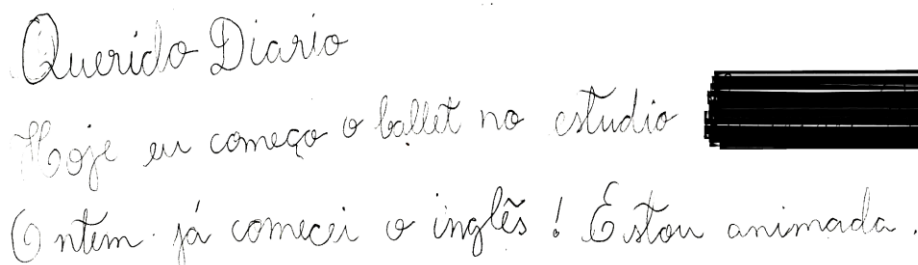 Querido Diario
Hoje eu começo o ballet no estudio
Ontem já comecei o inglês! Estou animada.